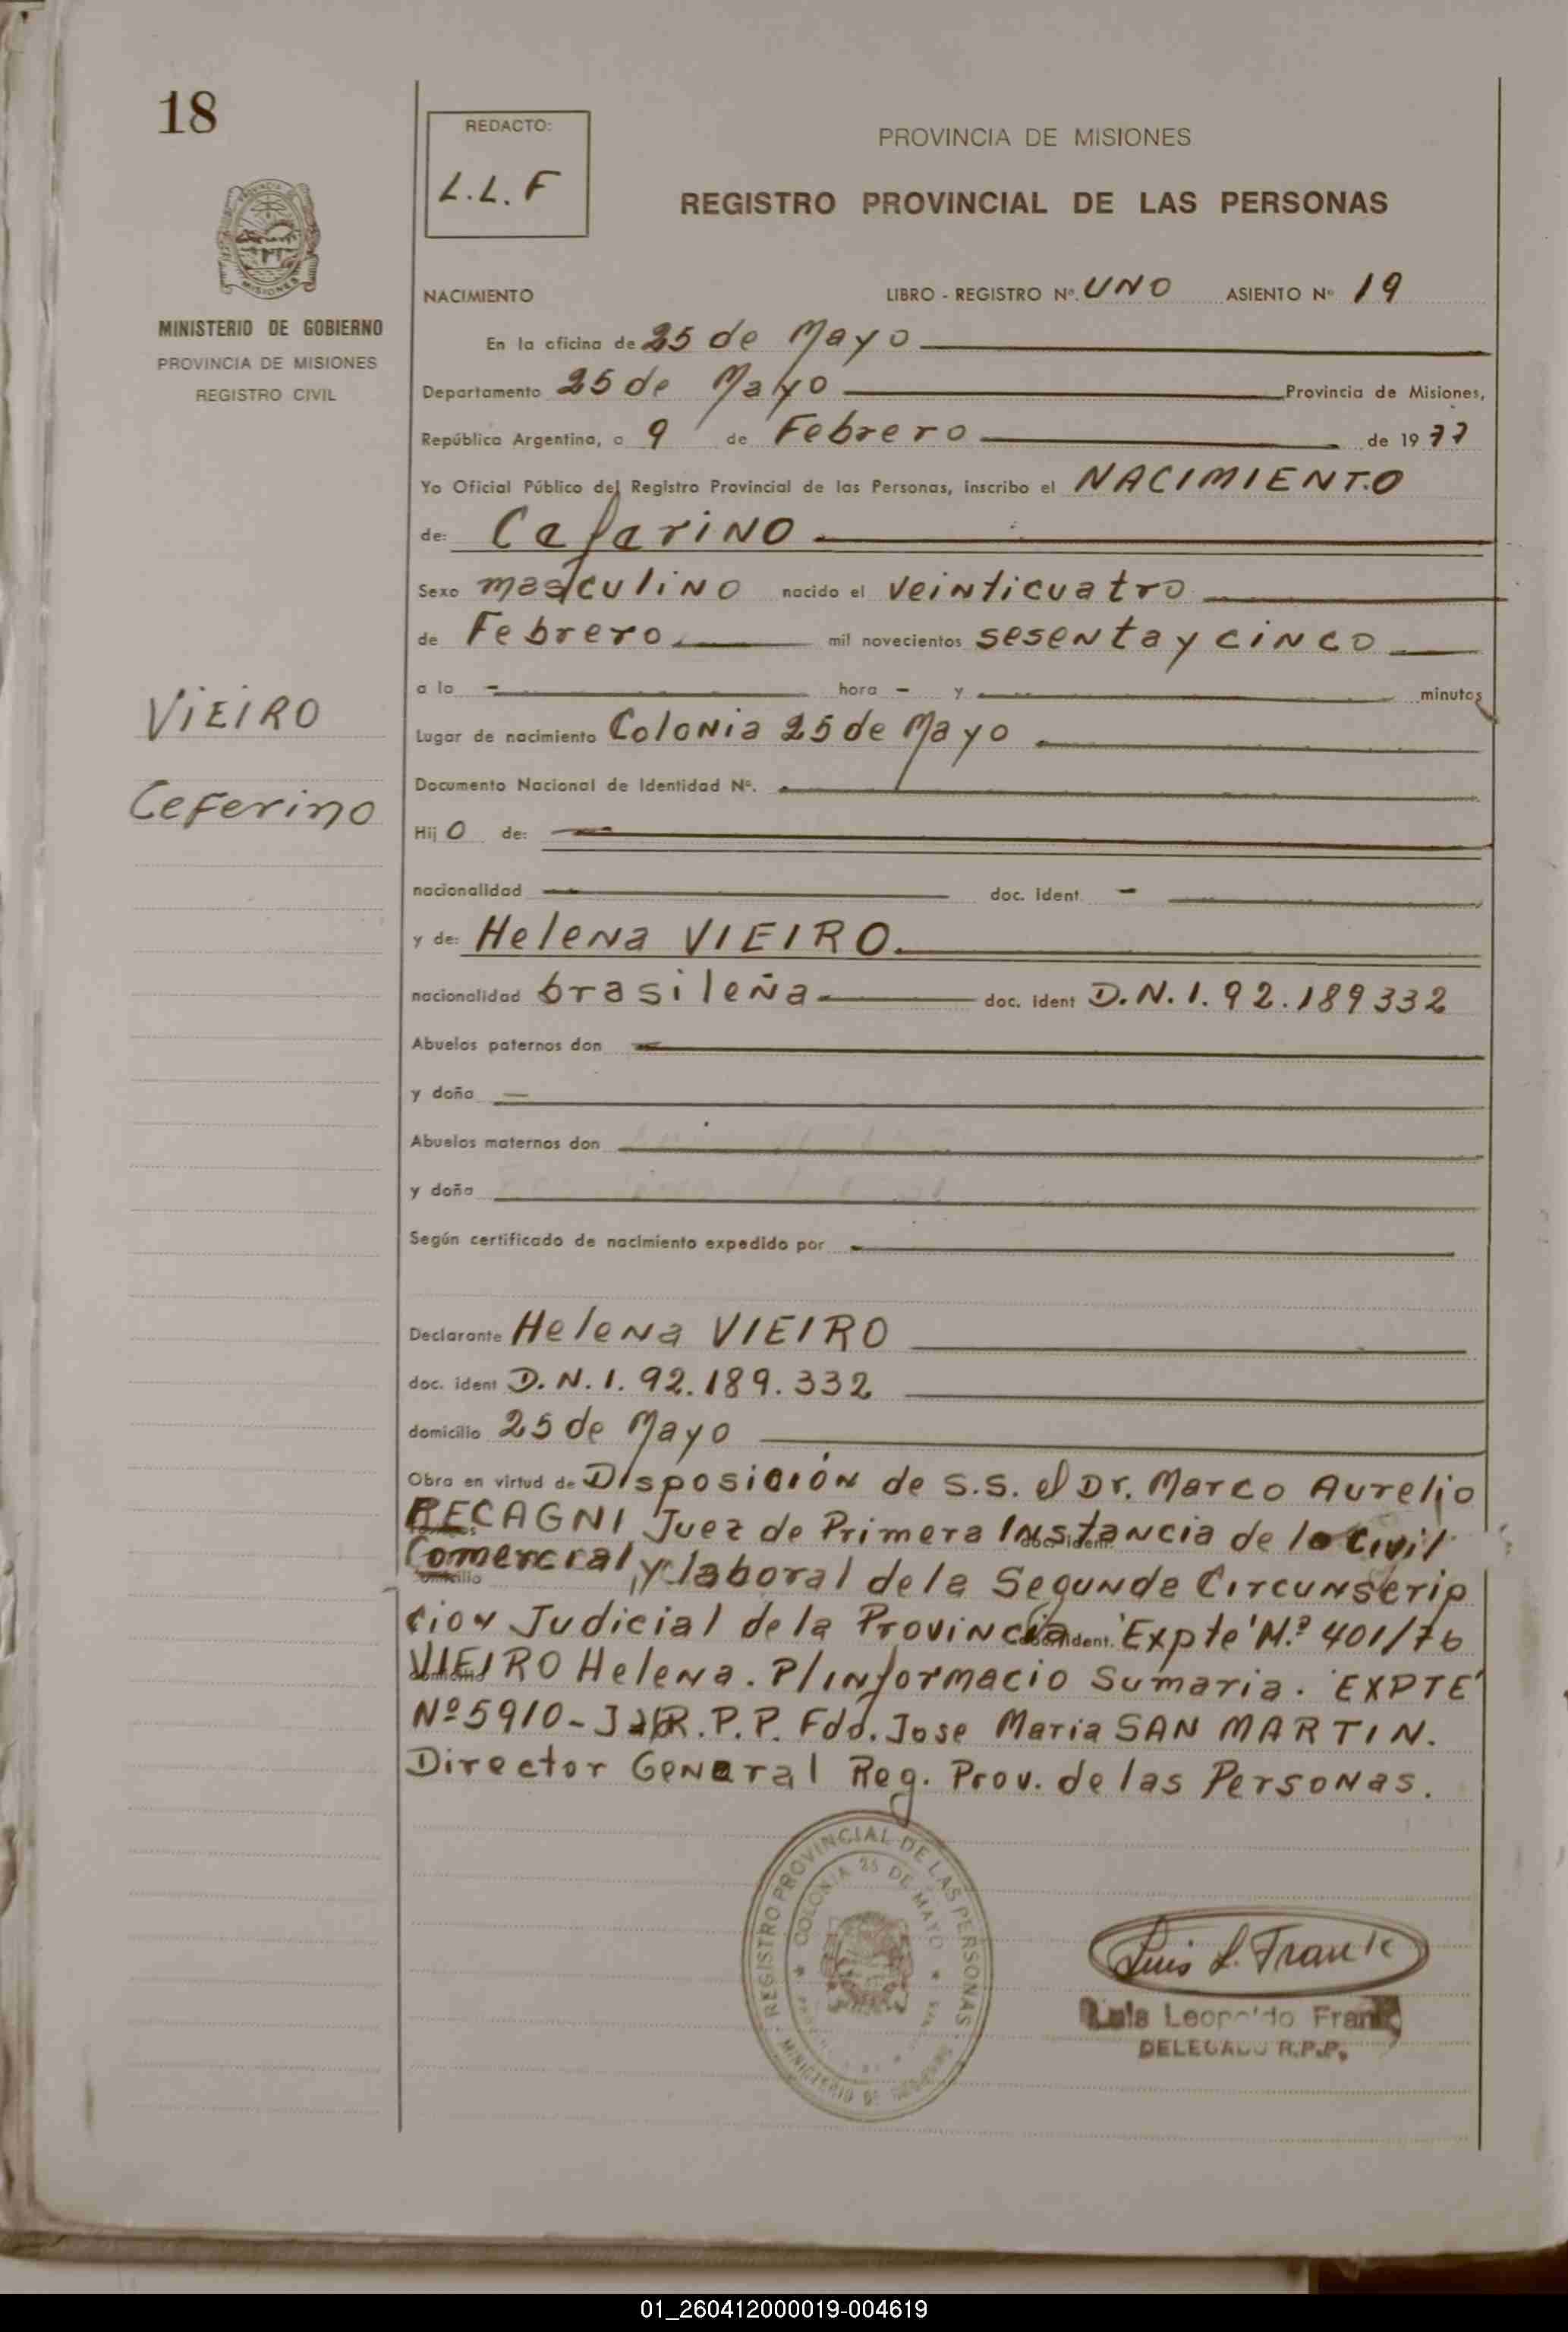 18
REDACTO:
L.L.F
PROVINCIA DE MISIONES
REGISTRO PROVINCIAL DE LAS PERSONAS
MISIONES
MINISTERIO DE GOBIERNO
PROVINCIA DE MISIONES
REGISTRO CIVIL
NACIMIENTO LIBRO - REGISTRO Nº. UNO ASIENTO Nº 19
En la oficina de 25 de Mayo
Departamento 25 de Mayo Provincia de Misiones,
República Argentina, a 9 de Febrero de 1977
Yo Oficial Público del Registro Provincial de las Personas, inscribo el NACIMIENTO
de: Ceferino
Sexo masculino nacido el veinticuatro
de Febrero mil novecientos sesenta y cinco
a la - hora - y minutos
VIEIRO
Lugar de nacimiento Colonia 25 de Mayo
Documento Nacional de Identidad Nº.
Ceferino
Hijo de:
nacionalidad doc. ident. -
y de: Helena VIEIRO.
nacionalidad brasileña doc. ident D.N.I. 92.189332
Abuelos paternos don
y doña
Abuelos maternos don
y doña
Según certificado de nacimiento expedido por
Declarante Helena VIEIRO
doc. ident D.N.I. 92.189.332
domicilio 25 de Mayo
Obra en virtud de Disposición de S.S. el Dr. Marco Aurelio
RECAGNI Juez de Primera Instancia de lo Civil
Comercial, y laboral de la Segunda Circunscrip
cion Judicial de la Provincia 'Expte' N.º 401/76
VIEIRO Helena. P/informacio Sumaria. 'EXPTE'
Nº 5910-J R.P.P. Fdo. Jose Maria SAN MARTIN.
Director General Reg. Prov. de las Personas.
REGISTRO PROVINCIAL DE LAS PERSONAS
COLONIA 25 DE MAYO
MINISTERIO DE GOBIERNO
Luis L. Frank
Luis Leopoldo Frank
DELEGADO R.P.P.
01_260412000019-004619